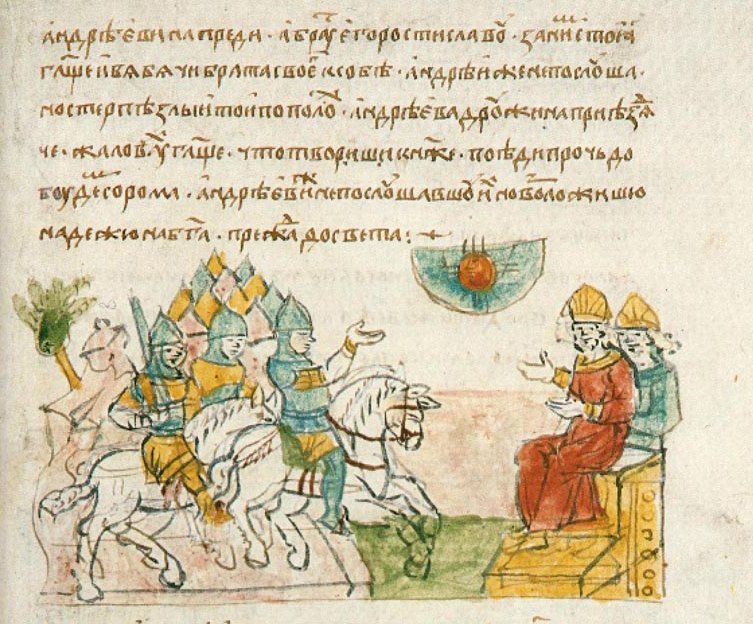 андрѣеви напреди · а браⷮ его ростиславоⷡ · за ниⷨ стоꙗ
гл҃аше и вабѧчи брата своеⷢ к собѣ · андрѣи же не послоуша ·
но стерпѣ злыи тои пополоⷯ · андрѣева дроужина приѣздѧ
че · жаловаⷯꙋ гл҃аше · что твориши кнѧже · поѣди прочь до
боудеⷨ сорома · андрѣевиⷤ не послоушавшоу иⷯ но возложившю
надежю на б҃га · прежⷣа до света :